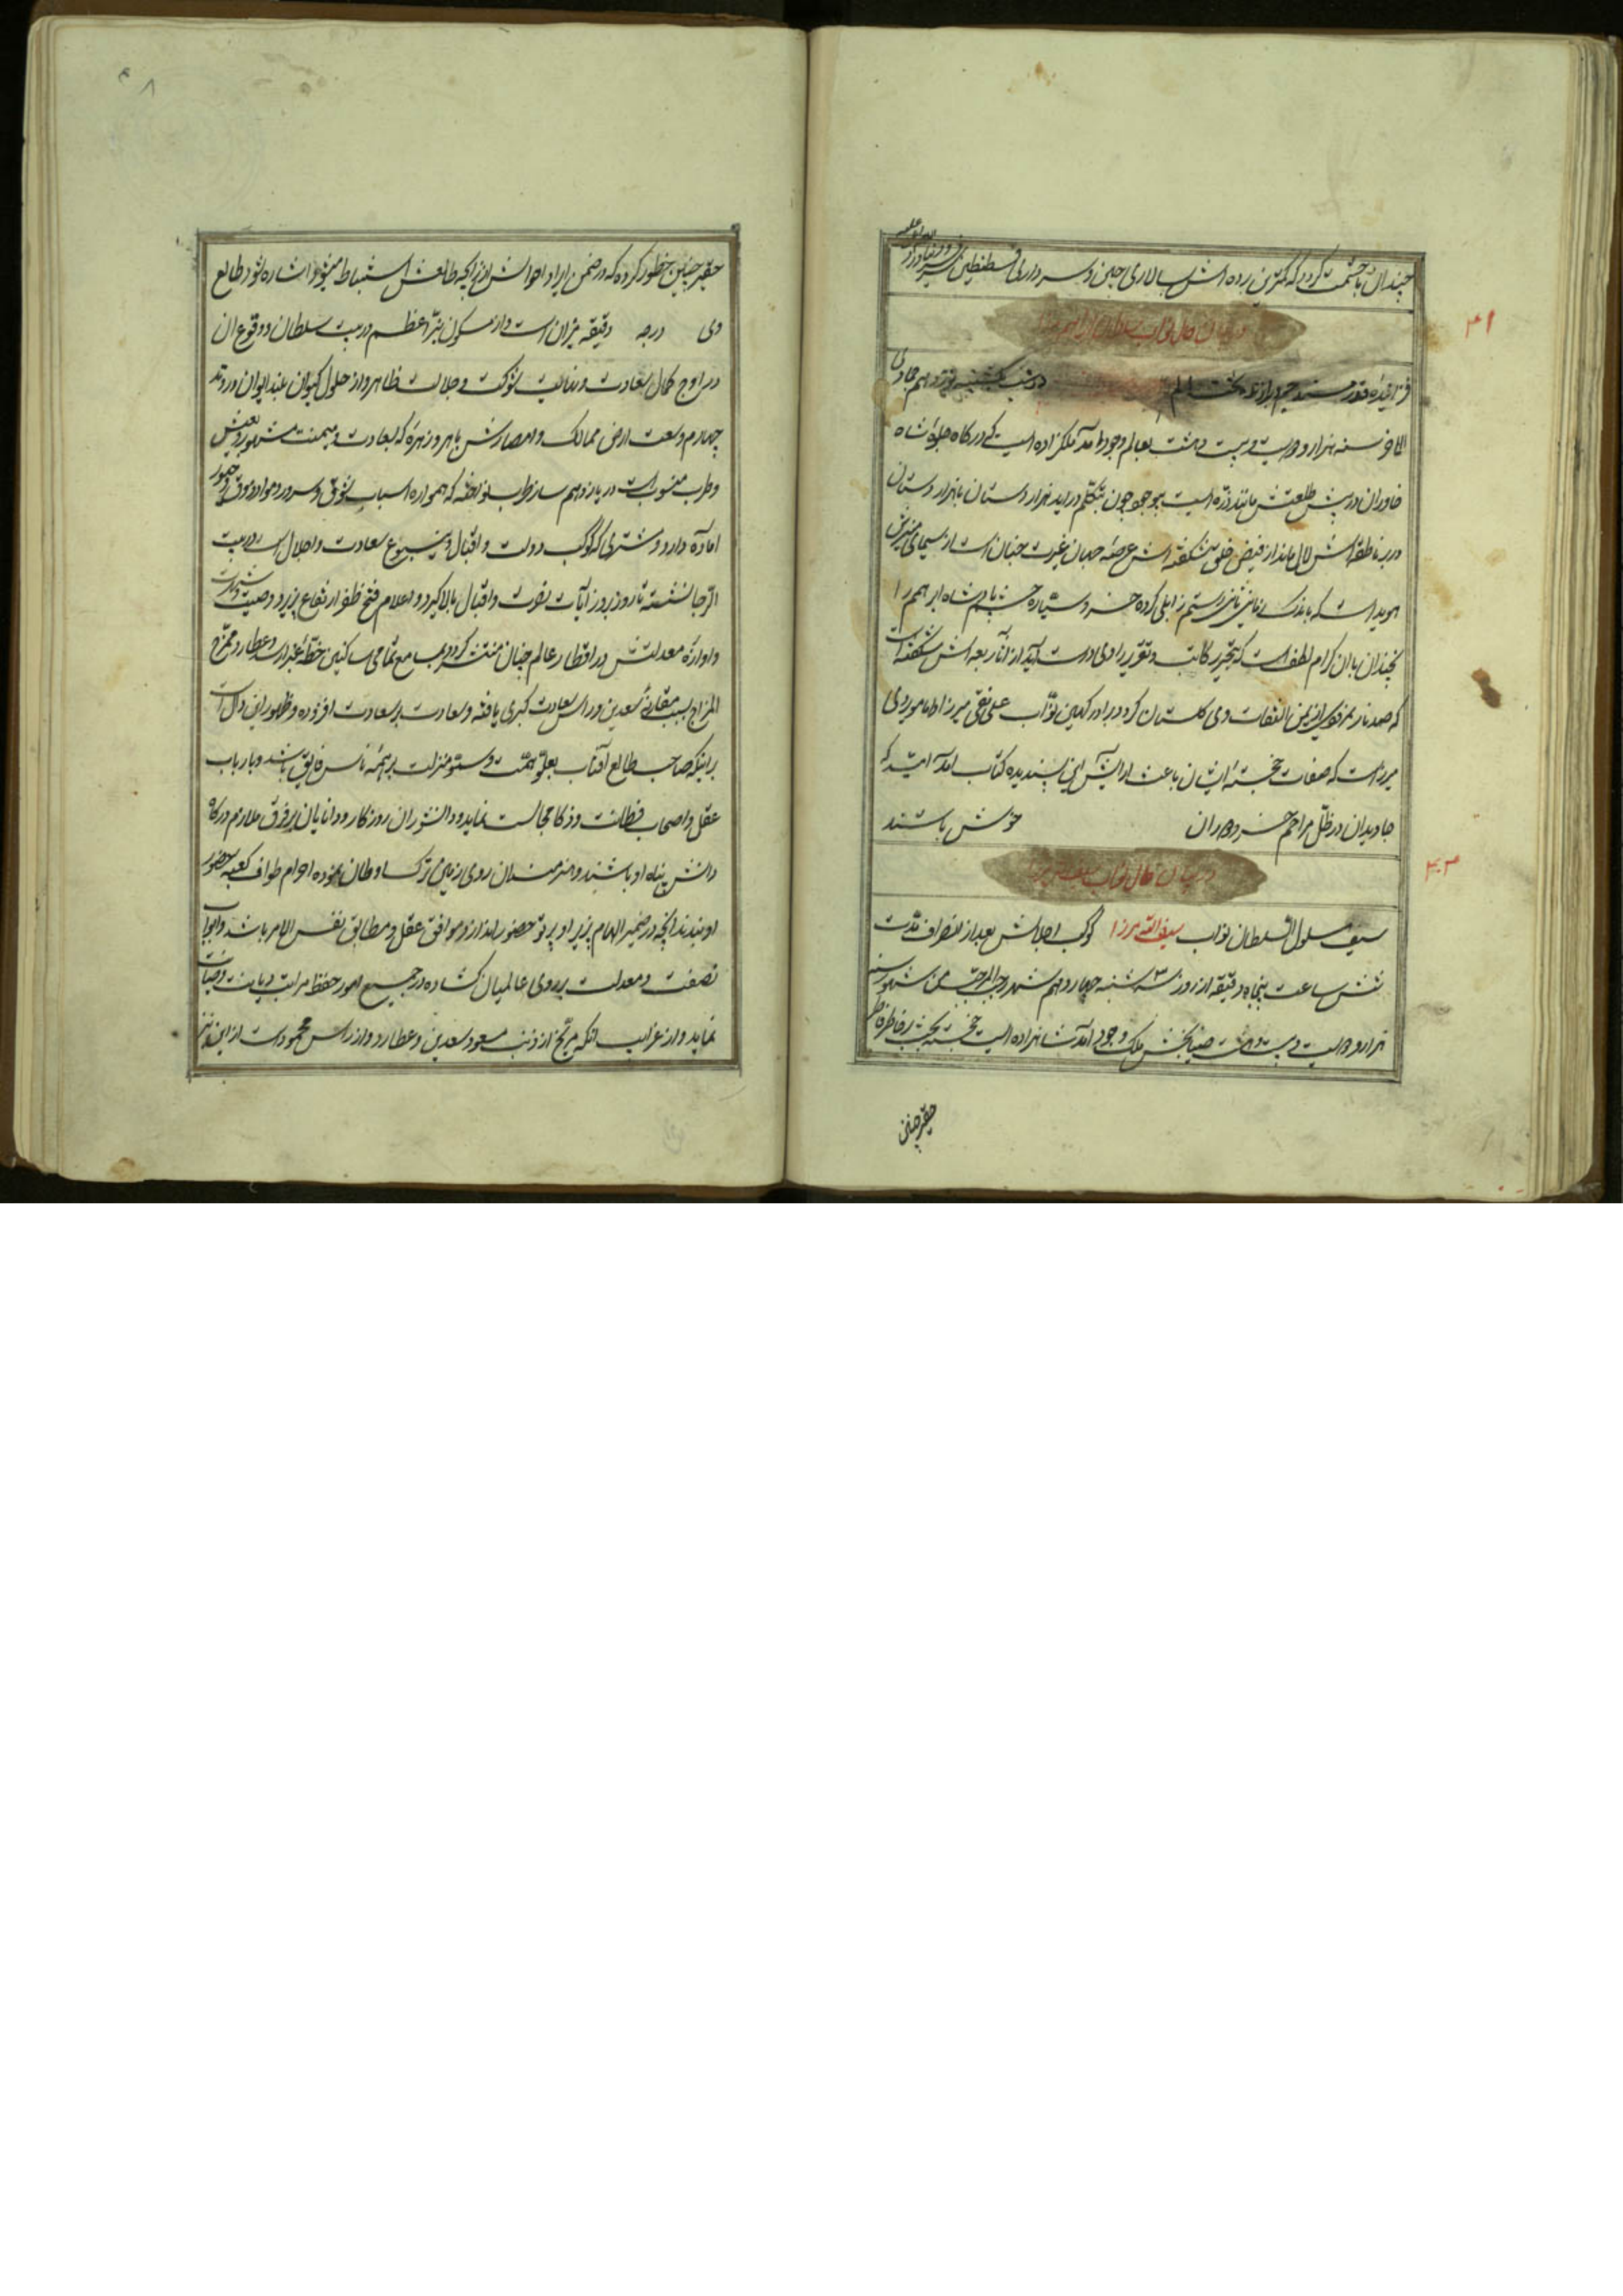 چندان باحشمت گردد که کمترین برده اش سالاری چین و سرداری قسطنطین
۴۱
در بیان حال نواب سلطان ابراهیم میرزا
در شب یکشنبه نوزدهم جمادی
سنه هزار و دویست و بیست و هشت بعالم وجود آمد ملکزاده ایست که در کاه جلوه شاه
خاوران در پیش طلعتش مانند ذره ایست چون بتکلم در اید هزار دستان با هزار دستان
در بر ناطقه اش لال ماند از فیض خلق شکفته اش عرصه جهان غیرت جنان است از سیمای
هویداست که باندک زمانی رستم زابلی کرده خسرو سیاره حشم پادشاه ابراهیم را
بچندان باران کرام لطف است که بتحریر کاتب و تقریر راوی راست آید از
که صد نار نمرود از یمن التفات وی گلستان کردد برادر کهین نواب علی نقی میرزا
میرزاست که صفات خجسته ایشان باعث ارایش این پسندیده کتاب آمد امید که
جاویدان در ظل مراحم خسرو دوران خوش باشند
۴۲
در بیان حال نواب سیف الله میرزا
سیف مسلول السلطان نواب سیف الله میرزا کوکب اجلالش بعد از انصراف مدت
شش ساعت پنجاه دقیقه از روز ۳ شنبه چهاردهم شهر رجب المرجب من شهور سنه
هزار و دویست و بیست و هشت ضیابخش ملک وجود آمد شاهزاده ایست خجسته بخت
حقیر چنین
۴۸
حقیر چنین بخطور کرده که در ضمن ایراد احوالش از زایچه طالعش استنباط میشود اشاره شود طالع
وی درجه دقیقه میزان است و از سکون نیر اعظم در بیت سلطان و وقوع ان
در اوج کمال سعادت و نهایت شوکت و جلالت ظاهر و از حلول کیوان بلند ایوان در وتد
چهارم وسعت ارض ممالک و امصارش باهر و زهره که بسعادت و میمنت مشهور و بعیش
و طرب منسوب است در یازدهم ساز طرب نواخته که همواره اسباب شوق و سرور و مواد ذوق و حبور
اماده دارد و مشتری که کوکب دولت و اقبال و ینبوع سعادت و اجلال است در بیت
الرجا نشسته تا روز بروز ایات نصرت و اقبال بالا گیرد و اعلام فتح و ظفر ارتفاع پذیرد و صیت
و اوازه معدلتش در اقطار عالم چنان منتشر کردد که بمسامع تمامی ساکنین خطه غبرا رسد و عطارد ممتزج
المزاج بسبب مقارنه سعدین و راس سعادت کبری یافته و سعادت بر سعادت افزوده و ظهور این دال است
بر اینکه صاحب طالع آفتاب بعلو همت و سمو منزلت بر همه ناس فایق باشد و با ارباب
عقل و اصحاب فطانت و ذکا مجالست نماید و دانشوران روزگار و دانایان هر فرق ملازم درگاه
دانش پناه او باشند و هنرمندان روی زمین ترک اوطان نموده احرام طواف کعبه حضور
او بندند انچه در ضمیر الهام پذیر او پرتو حضور اندازد موافق عقل و مطابق نفس الامر باشد و ابواب
نصفت و معدلت بر روی عالمیان کشاده در جمیع امور حفظ مراتب دیانت و صیانت
نماید و از غرایب انکه مریخ از ذنب مسعود سعدین و عطارد و از راس محمود است از این